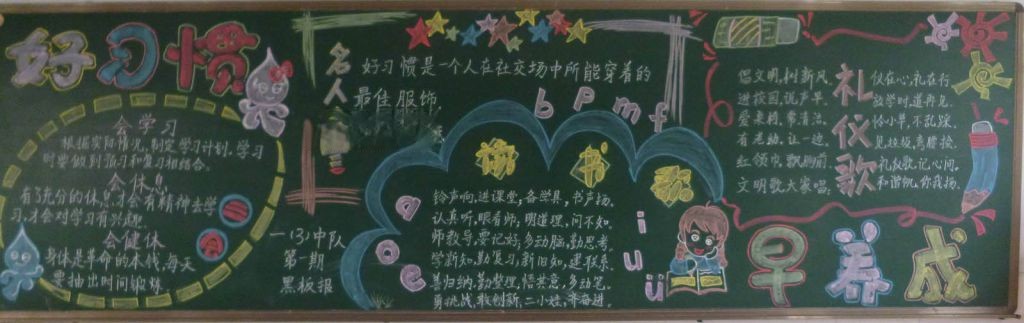 好习惯
会学习
根据实际情况,制定学习计划,学习
时要做到预习和复习相结合。
会休息
有了充分的休息,才会有精神去学
习,才会对学习有兴趣。
会健体
身体是革命的本钱,每天
要抽出时间锻炼。
名人
好习惯是一个人在社交场中所能穿着的
最佳服饰。
一(3)中队
第一期
黑板报
b p m f
a o e
i u ü
书歌
铃声响,进课堂,备学具,书声扬。
认真听,眼看师,明道理,问不知。
师教导,要记好,多动脑,勤思考。
学新知,勤复习,新旧知,建联系。
善归纳,勤整理,悟其意,多动笔。
勇挑战,敢创新,二小娃,齐奋进。
礼仪歌
倡文明,树新风
进校园,说声早。
爱桌椅,常清洁,
有走动,让一边,
红领巾,飘胸前,
文明歌大家唱,
仪在心,礼在行
放学时,道再见。
惜小草,不乱踩。
见垃圾,弯腰捡。
礼仪歌,记心间。
和谐帆,你我扬。
早养成